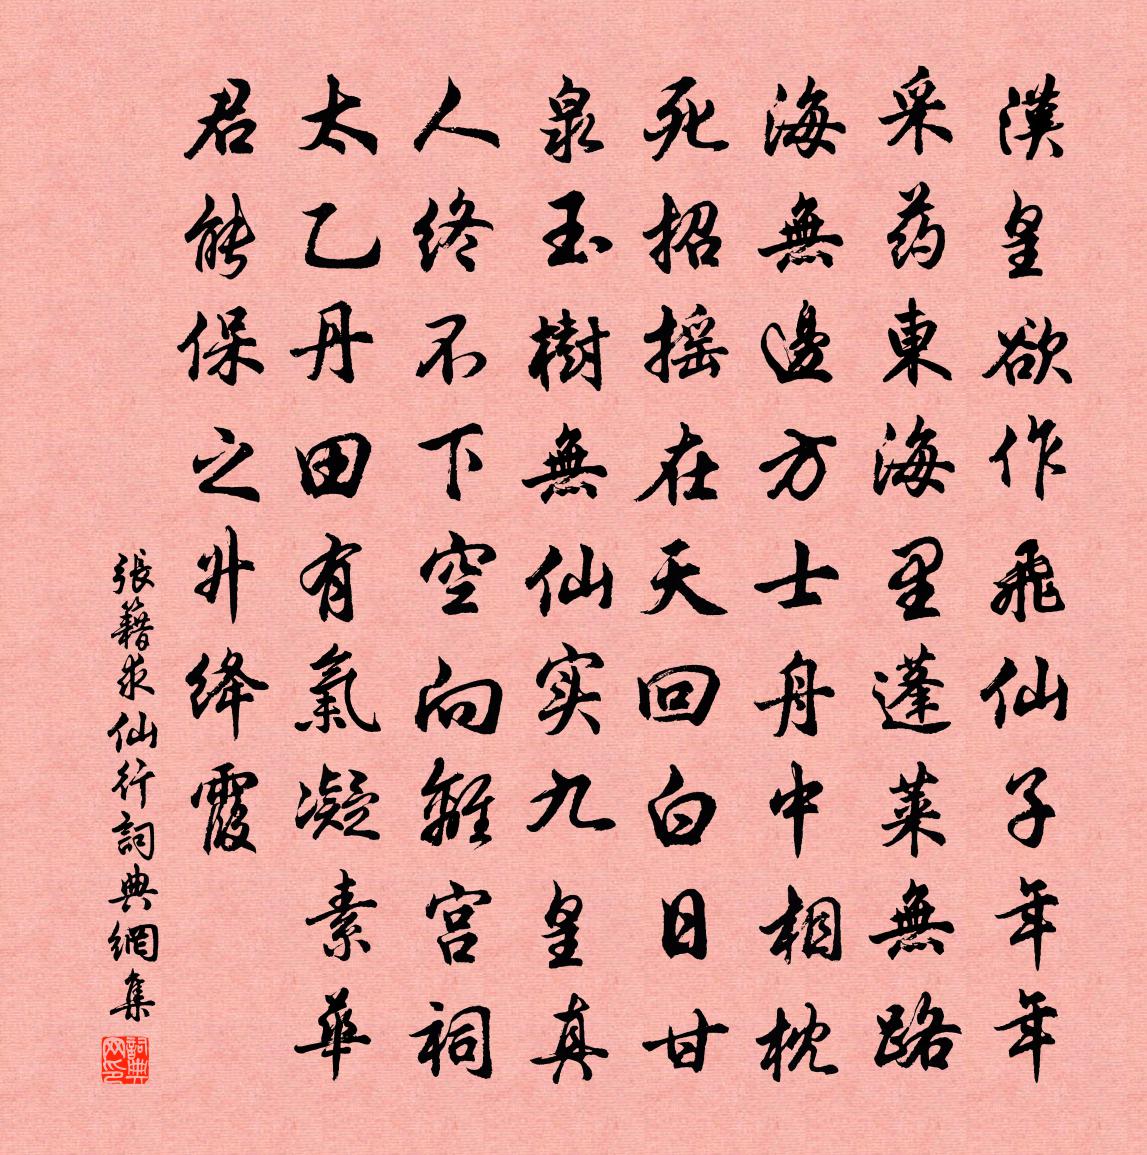 漢皇欲作飛仙子年年
采药東海里蓬莱無路
海無邊方士舟中相枕
死招摇在天回白日甘
泉玉樹無仙实九皇真
人终不下空向離宫祠
太乙丹田有氣凝素華
君能保之升绛霞
張籍求仙行詞典網集
詞典网印